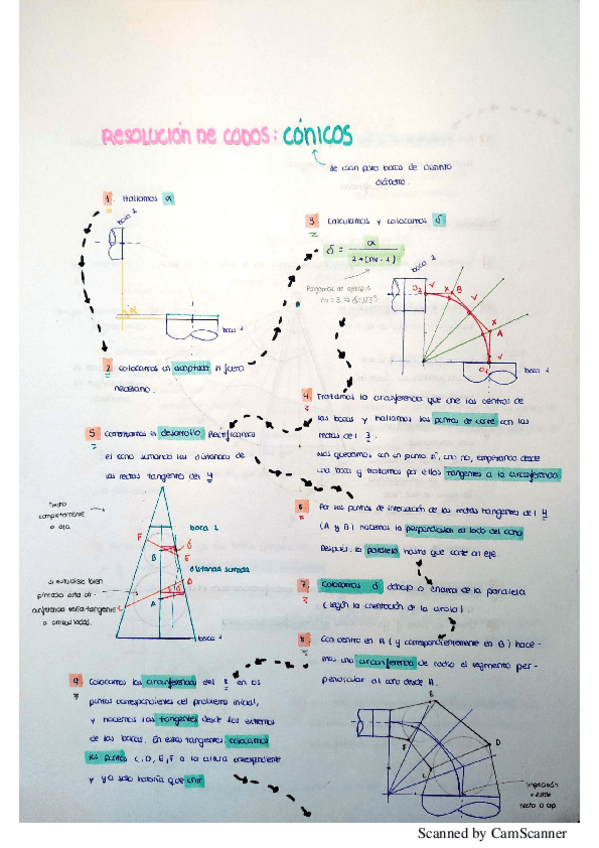 RESOLUCIÓN DE CODOS: CÓNICOS
Se usan para bocas de distinto
diámetro.
1. Hallamos α
boca 2
α
boca 1
2. Colocamos un adaptador si fuera
necesario.
3. Calculamos y colocamos δ
δ = α / 2+(nv-1)
Pongamos de ejemplo
boca 2
O2
V
X
B
V
X
A
V
O1
boca 1
4. Trazamos la circunferencia que une los centros de
las bocas y hallamos los puntos de corte con las
rectas del 3.
Nos quedamos con un punto sí, uno no, empezando desde
una boca y trazamos por ellos tangentes a la circunferencia
5. Comenzamos el desarrollo. Rectificamos
el cono sumando las distancias de
las rectas tangentes del 4
completamente
a ojo.
boca 2
F
B
δ
E
distancias sumadas
D
A
C
boca 1
Si estuviese bien
circunferencia sería tangente
a ambos lados.
6. Por los puntos de intersección de las rectas tangentes del 4
(A y B) hacemos la perpendicular al lado del cono
Después, la paralela hasta que corte al eje
7. Colocamos δ debajo o encima de la paralela
(según la orientación de la virola)
8. Con centro en A (y correspondientemente en B) hace-
mos una circunferencia de radio el segmento per-
pendicular al cono desde A.
9. Colocamos las circunferencias del 8 en los
puntos correspondientes del problema inicial,
y hacemos las tangentes desde los extremos
de las bocas. En estas tangentes colocamos
los puntos C, D, E, F a la altura correspondiente
y ya solo habría que unir
E
F
D
C
hecho a ojo
Scanned by CamScanner